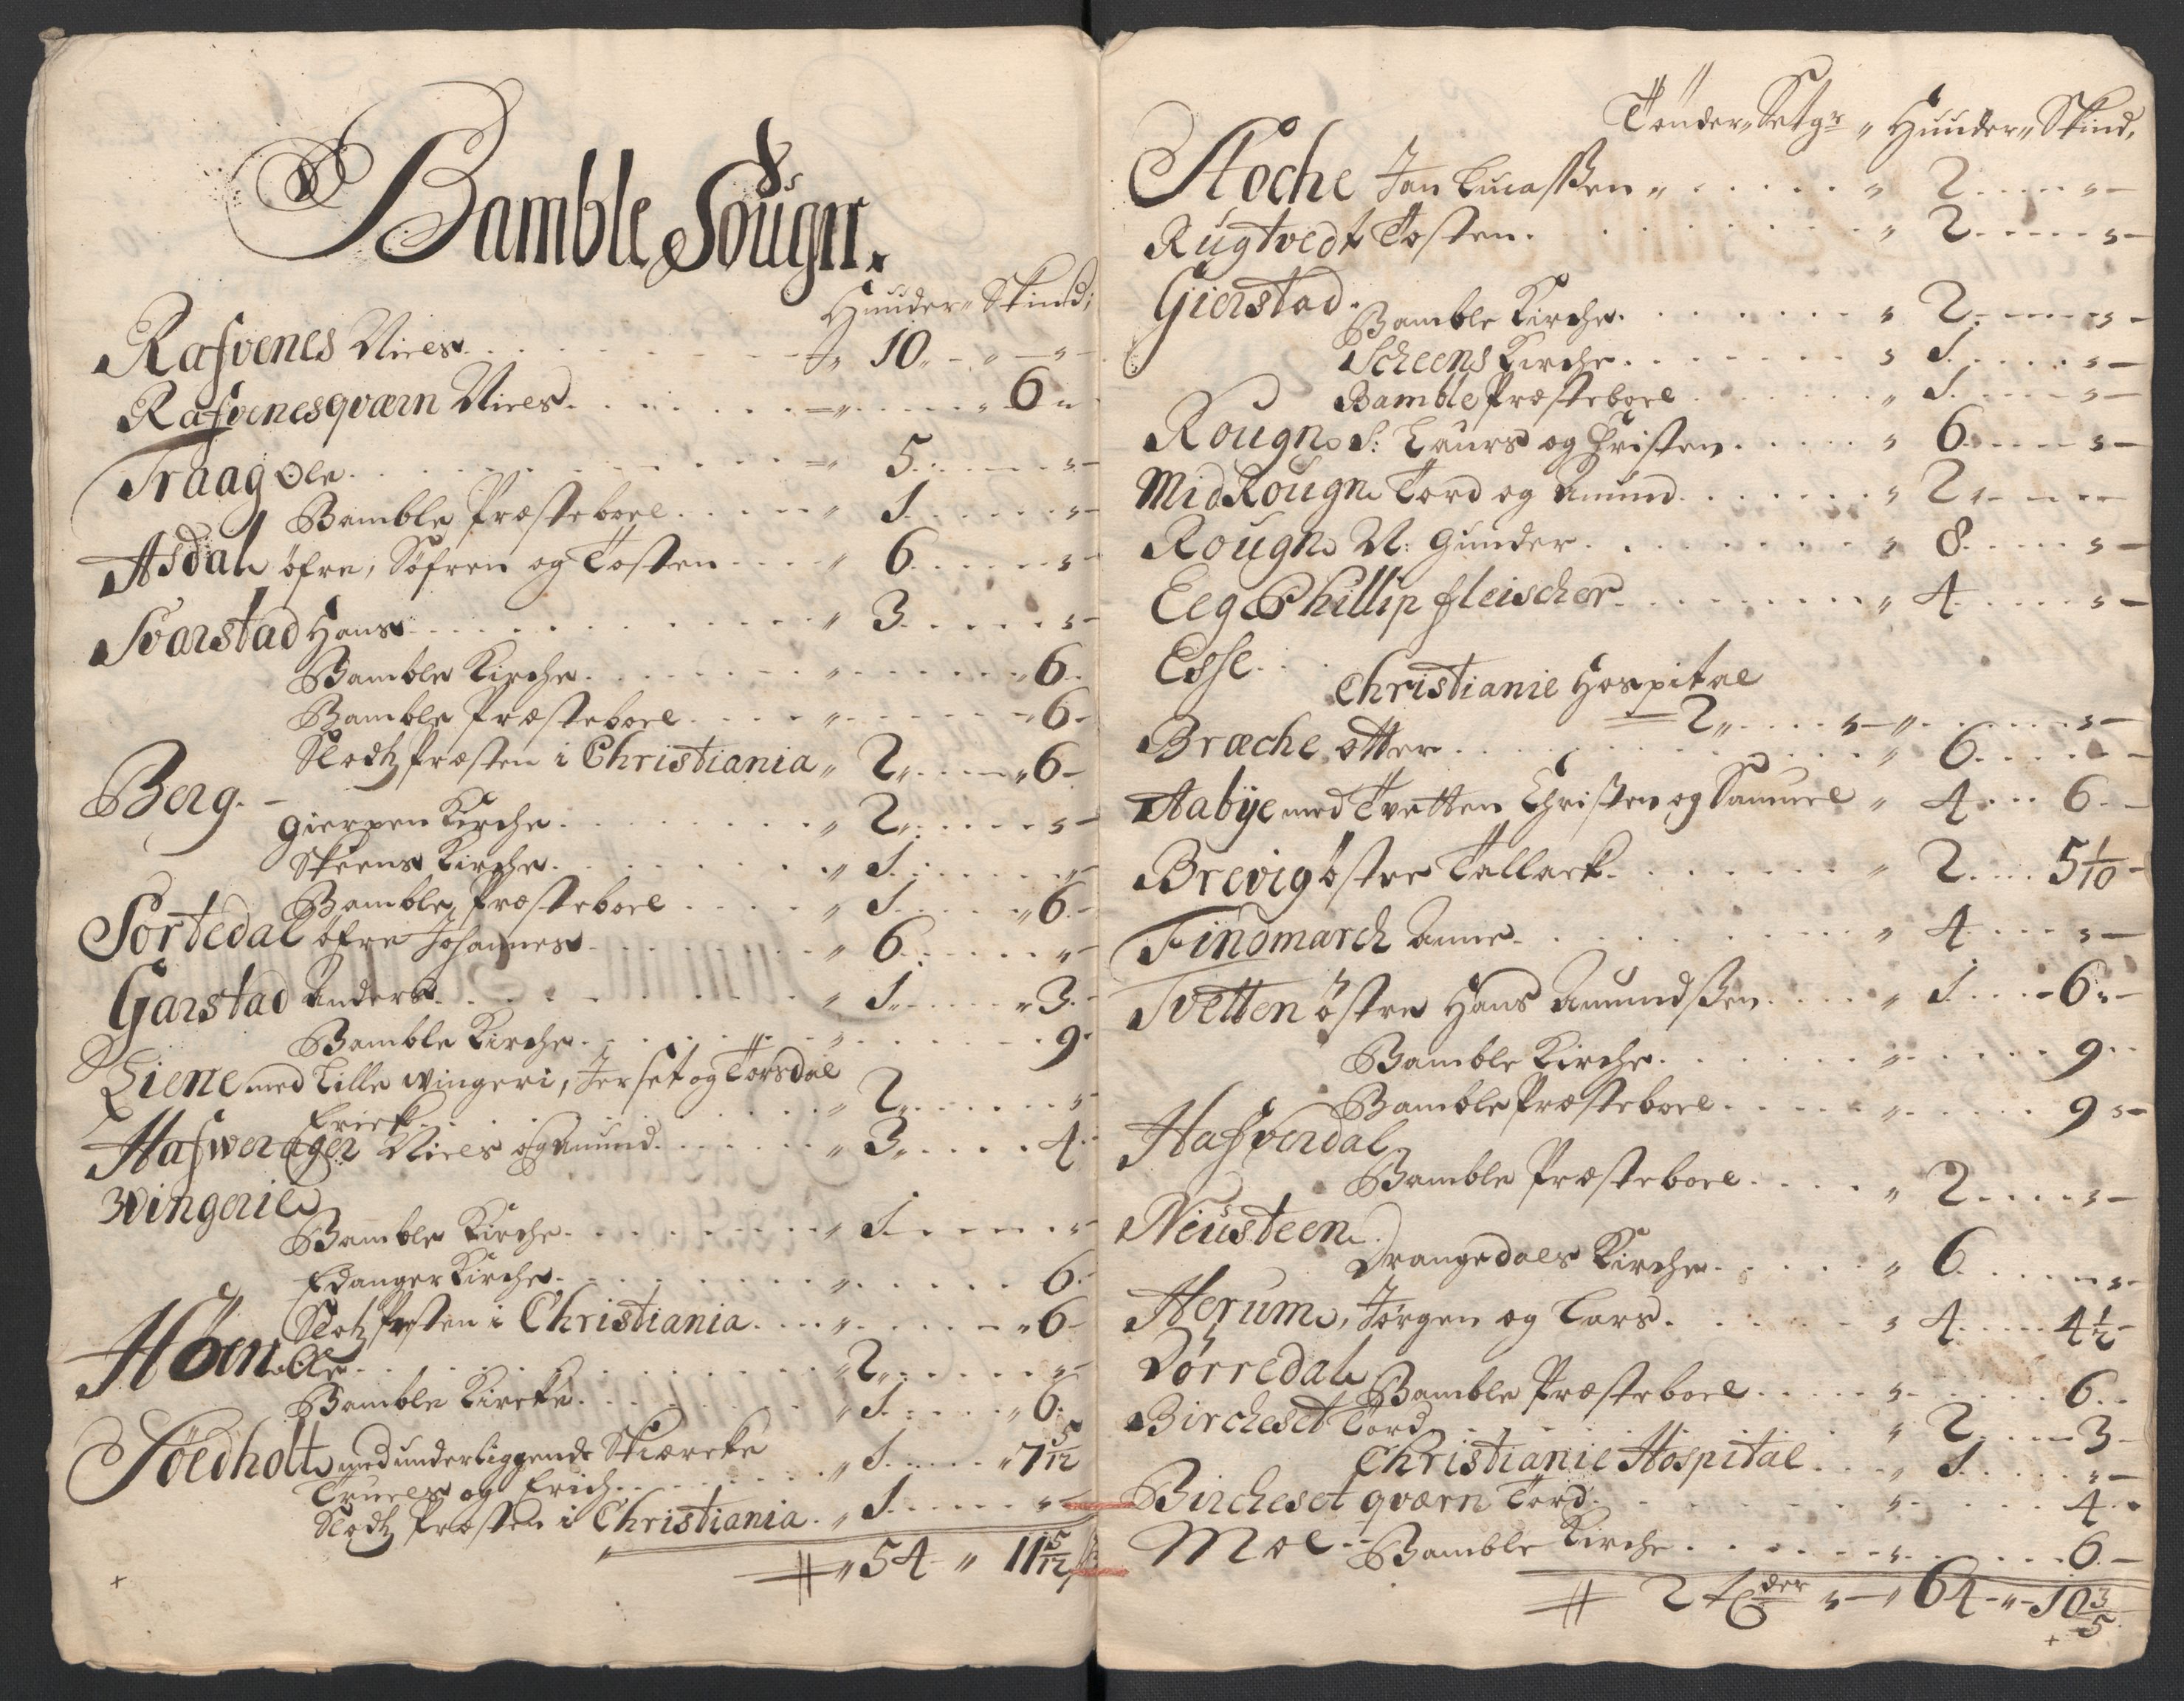 Bamble Sougn.
Huuder„ Skind;
Rafvenes Niels. „ 10 „ - „
Rafvenesqværn Niels. „ 6 „
Traag Ole. „ 5 „
Bamble Præsteboel. „ 1 „
Asdahl öfre, Söfren og Tosten „ 6 „
Svarstad Hans. „ 3 „
Bamble Kirche. „ 6
Bamble Præsteboel. „ 6
Berg.
Slodtz Præsten i Christiania „ 2 „ 6
Gierpen Kirche. „ 2 „
Skeens Kirche. „ 1 „
Bamble Præsteboel „ 1 „ 6
Sortedal öfre Johannes „ 6 „
Garstad Anders. „ 1 „ 3
Bamble Kirche. „ 9
Liene med Lille Wingeri, Jerset og Torsdal
Erick. „ 2 „
Hafwerager Niels og Amund. „ 3 „ 4
Wingerie
Bamble Kirche. „ 1 „
Edanger Kirche. „ 6
Slotz Præsten i Christiania. „ 6
Höen Ole. „ 2 „
Bamble Kircke. „ 1 „ 6
Söedholt med underliggende Skiærcke
Truels og Erich. „ 1 „ 7 5/12
Slodtz Præsten i Christiania. „ 1 „
„ 54 „ 11 5/12
Tönder„ Setgr „ Huuder„ Skind,
Stoche Jan Lucassen „ „ 2 „
Rugtvedt Tosten. „ 2 „
Gierstad.
Bamble Kirche. „ 2 „
Scheens Kirche. „ 1 „
Bamble Præsteboel. „ 1 „
Rougn S: Laurs og Christen. „ 6 „
Mid Rougn Tord og Amund. „ 2 „
Rougn N: Gunder. „ 8 „
Eeg Phillip fleischer. „ 4 „
Esse.
Christianie Hospital
2 „ „ „ „
Bræche otter. „ 6
Aabÿe med Tvetten Christen og Samuel „ 4 6
Brevig östre Tallack. „ 2 5 1/10
Findmarch Anne. „ 4 „
Tvetten östre Hans Amundssen. „ 1 6
Bamble Kirche. „ 9
Bamble Præsteboel. „ 9
Hafverdal
Bamble Præsteboel. „ 2 „
Neusteen.
Drangedals Kirche. „ 6 „
Herum, Jörgen og Lars. „ 4 4 1/2
Dörredal
Bamble Præsteboel. „ 6
Bircheset Tord. „ 2 3
Christianie Hospital. „ 1 „
Bircheset qværn Tord. „ 4
Moe Bamble Kirche. „ 6
2 tder „ „ 64 „ 10 3/5